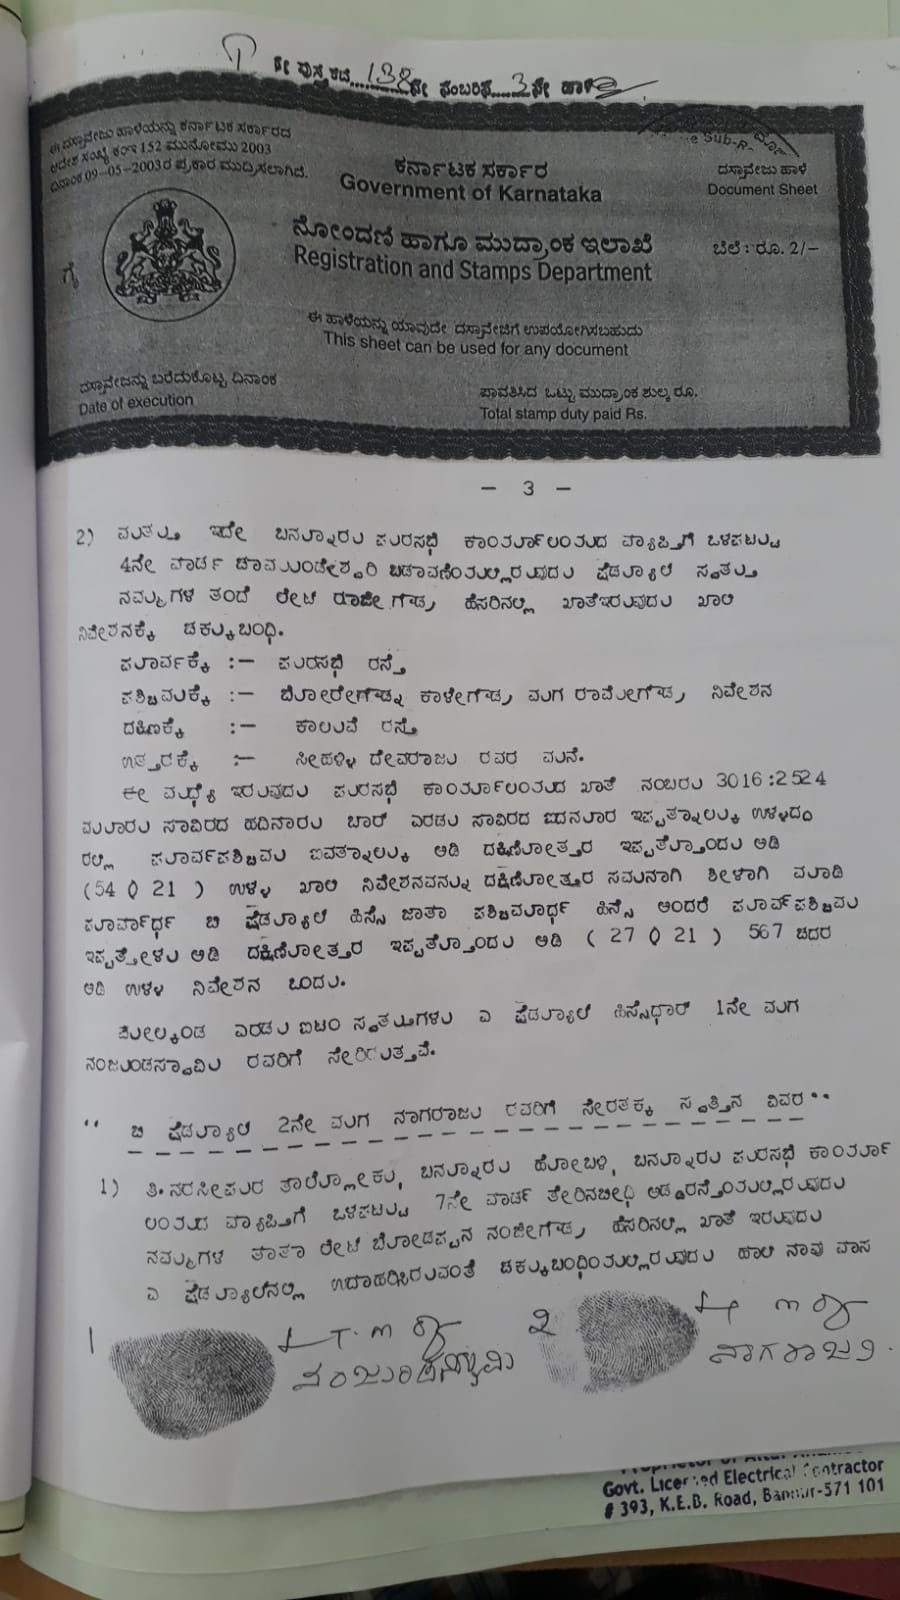 1 ನೇ ಪುಸ್ತಕದ 138 ನೇ ನಂಬರಿನ 3 ನೇ ಹಾಳೆ
ಈ ದಸ್ತಾವೇಜು ಹಾಳೆಯನ್ನು ಕರ್ನಾಟಕ ಸರ್ಕಾರದ
ಆದೇಶ ಸಂಖ್ಯೆ ಕಂಇ 152 ಮುನೋಮು 2003
ದಿನಾಂಕ 09-05-2003ರ ಪ್ರಕಾರ ಮುದ್ರಿಸಲಾಗಿದೆ.
ಕರ್ನಾಟಕ ಸರ್ಕಾರ
Government of Karnataka
Sub-R
ದಸ್ತಾವೇಜು ಹಾಳೆ
Document Sheet
ನೋಂದಣಿ ಹಾಗೂ ಮುದ್ರಾಂಕ ಇಲಾಖೆ
Registration and Stamps Department
ಬೆಲೆ : ರೂ. 2/-
ಈ ಹಾಳೆಯನ್ನು ಯಾವುದೇ ದಸ್ತಾವೇಜಿಗೆ ಉಪಯೋಗಿಸಬಹುದು
This sheet can be used for any document
ದಸ್ತಾವೇಜನ್ನು ಬರೆದುಕೊಟ್ಟ ದಿನಾಂಕ
Date of execution
ಪಾವತಿಸಿದ ಒಟ್ಟು ಮುದ್ರಾಂಕ ಶುಲ್ಕ ರೂ.
Total stamp duty paid Rs.
- 3 -
2) ಮತ್ತು ಇದೇ ಬನ್ನೂರು ಪುರಸಭೆ ಕಾರ್ಯಾಲಯದ ವ್ಯಾಪ್ತಿಗೆ ಒಳಪಟ್ಟ
4ನೇ ವಾರ್ಡ ಚಾಮುಂಡೇಶ್ವರಿ ಬಡಾವಣೆಯಲ್ಲಿರುವುದು ಷೆಡ್ಯೂಲ್ ಸ್ವತ್ತು
ನಮ್ಮಗಳ ತಂದೆ ಲೇಟ್ ರಾಜೇಗೌಡ್ರ ಹೆಸರಿನಲ್ಲಿ ಖಾತೆಇರುವುದು ಖಾಲಿ
ನಿವೇಶನಕ್ಕೆ ಚಕ್ಕುಬಂಧಿ.
ಪೂರ್ವಕ್ಕೆ :- ಪುರಸಭೆ ರಸ್ತೆ
ಪಶ್ಚಿಮಕ್ಕೆ :- ಬೋರೇಗೌಡ್ನ ಕಾಳೇಗೌಡ್ರ ಮಗ ರಾಮೇಗೌಡ್ರ ನಿವೇಶನ
ದಕ್ಷಿಣಕ್ಕೆ :- ಕಾಲುವೆ ರಸ್ತೆ
ಉತ್ತರಕ್ಕೆ :- ಸೀಹಳ್ಳಿ ದೇವರಾಜು ರವರ ಮನೆ.
ಈ ಮಧ್ಯೆ ಇರುವುದು ಪುರಸಭೆ ಕಾರ್ಯಾಲಯದ ಖಾತೆ ನಂಬರು 3016:2524
ಮೂರು ಸಾವಿರದ ಹದಿನಾರು ಬಾರ್ ಎರಡು ಸಾವಿರದ ಐದನೂರ ಇಪ್ಪತ್ನಾಲ್ಕು ಉಳ್ಳದ್ದ
ರಲ್ಲಿ ಪೂರ್ವಪಶ್ಚಿಮ ಐವತ್ನಾಲ್ಕು ಅಡಿ ದಕ್ಷಿಣೋತ್ತರ ಇಪ್ಪತ್ತೊಂದು ಅಡಿ
(54 0 21 ) ಉಳ್ಳ ಖಾಲಿ ನಿವೇಶನವನ್ನು ದಕ್ಷಿಣೋತ್ತರ ಸಮನಾಗಿ ಶೀಳಾಗಿ ಮಾಡಿ
ಪೂರ್ವಾರ್ಧ ಬಿ ಷೆಡ್ಯೂಲ್ ಹಿಸ್ಸೆ ಜಾತಾ ಪಶ್ಚಿಮಾರ್ಧ ಹಿಸ್ಸೆ ಅಂದರೆ ಪೂರ್ವಪಶ್ಚಿಮ
ಇಪ್ಪತ್ತೇಳು ಅಡಿ ದಕ್ಷಿಣೋತ್ತರ ಇಪ್ಪತ್ತೊಂದು ಅಡಿ ( 27 0 21 ) 567 ಚದರ
ಅಡಿ ಉಳ್ಳ ನಿವೇಶನ ಒಂದು.
ಮೇಲ್ಕಂಡ ಎರಡು ಐಟಂ ಸ್ವತ್ತುಗಳು ಎ ಷೆಡ್ಯೂಲ್ ಹಿಸ್ಸೆಧಾರ್ 1ನೇ ಮಗ
ನಂಜುಂಡಸ್ವಾಮಿ ರವರಿಗೆ ಸೇರಿರುತ್ತವೆ.
" ಬಿ ಷೆಡ್ಯೂಲ್ 2ನೇ ಮಗ ನಾಗರಾಜು ರವರಿಗೆ ಸೇರತಕ್ಕ ಸ್ವತ್ತಿನ ವಿವರ"
1) ತಿ.ನರಸೀಪುರ ತಾಲ್ಲೋಕು, ಬನ್ನೂರು ಹೋಬಳಿ, ಬನ್ನೂರು ಪುರಸಭೆ ಕಾರ್ಯಾ
ಲಯದ ವ್ಯಾಪ್ತಿಗೆ ಒಳಪಟ್ಟ 7ನೇ ವಾರ್ಡ್ ತೇರಿನಬೀಧಿ ಅಡ್ಡರಸ್ತೆಯಲ್ಲಿರುವುದು
ನಮ್ಮಗಳ ತಾತಾ ಲೇಟ್ ಬೋಡಪ್ಪನ ನಂಜೇಗೌಡ್ರ ಹೆಸರಿನಲ್ಲಿ ಖಾತೆ ಇರುವುದು
ಎ ಷೆಡ್ಯೂಲ್‌ನಲ್ಲಿ ಉದಾಹರಿಸಿರುವಂತೆ ಚಕ್ಕುಬಂಧಿಯಲ್ಲಿರುವುದು ಹಾಲಿ ನಾವು ವಾಸ
1 ನಂಜುಂಡಸ್ವಾಮಿ
2 ನಾಗರಾಜು.
Govt. Licensed Electrical Contractor
# 393, K.E.B. Road, Bannur-571 101